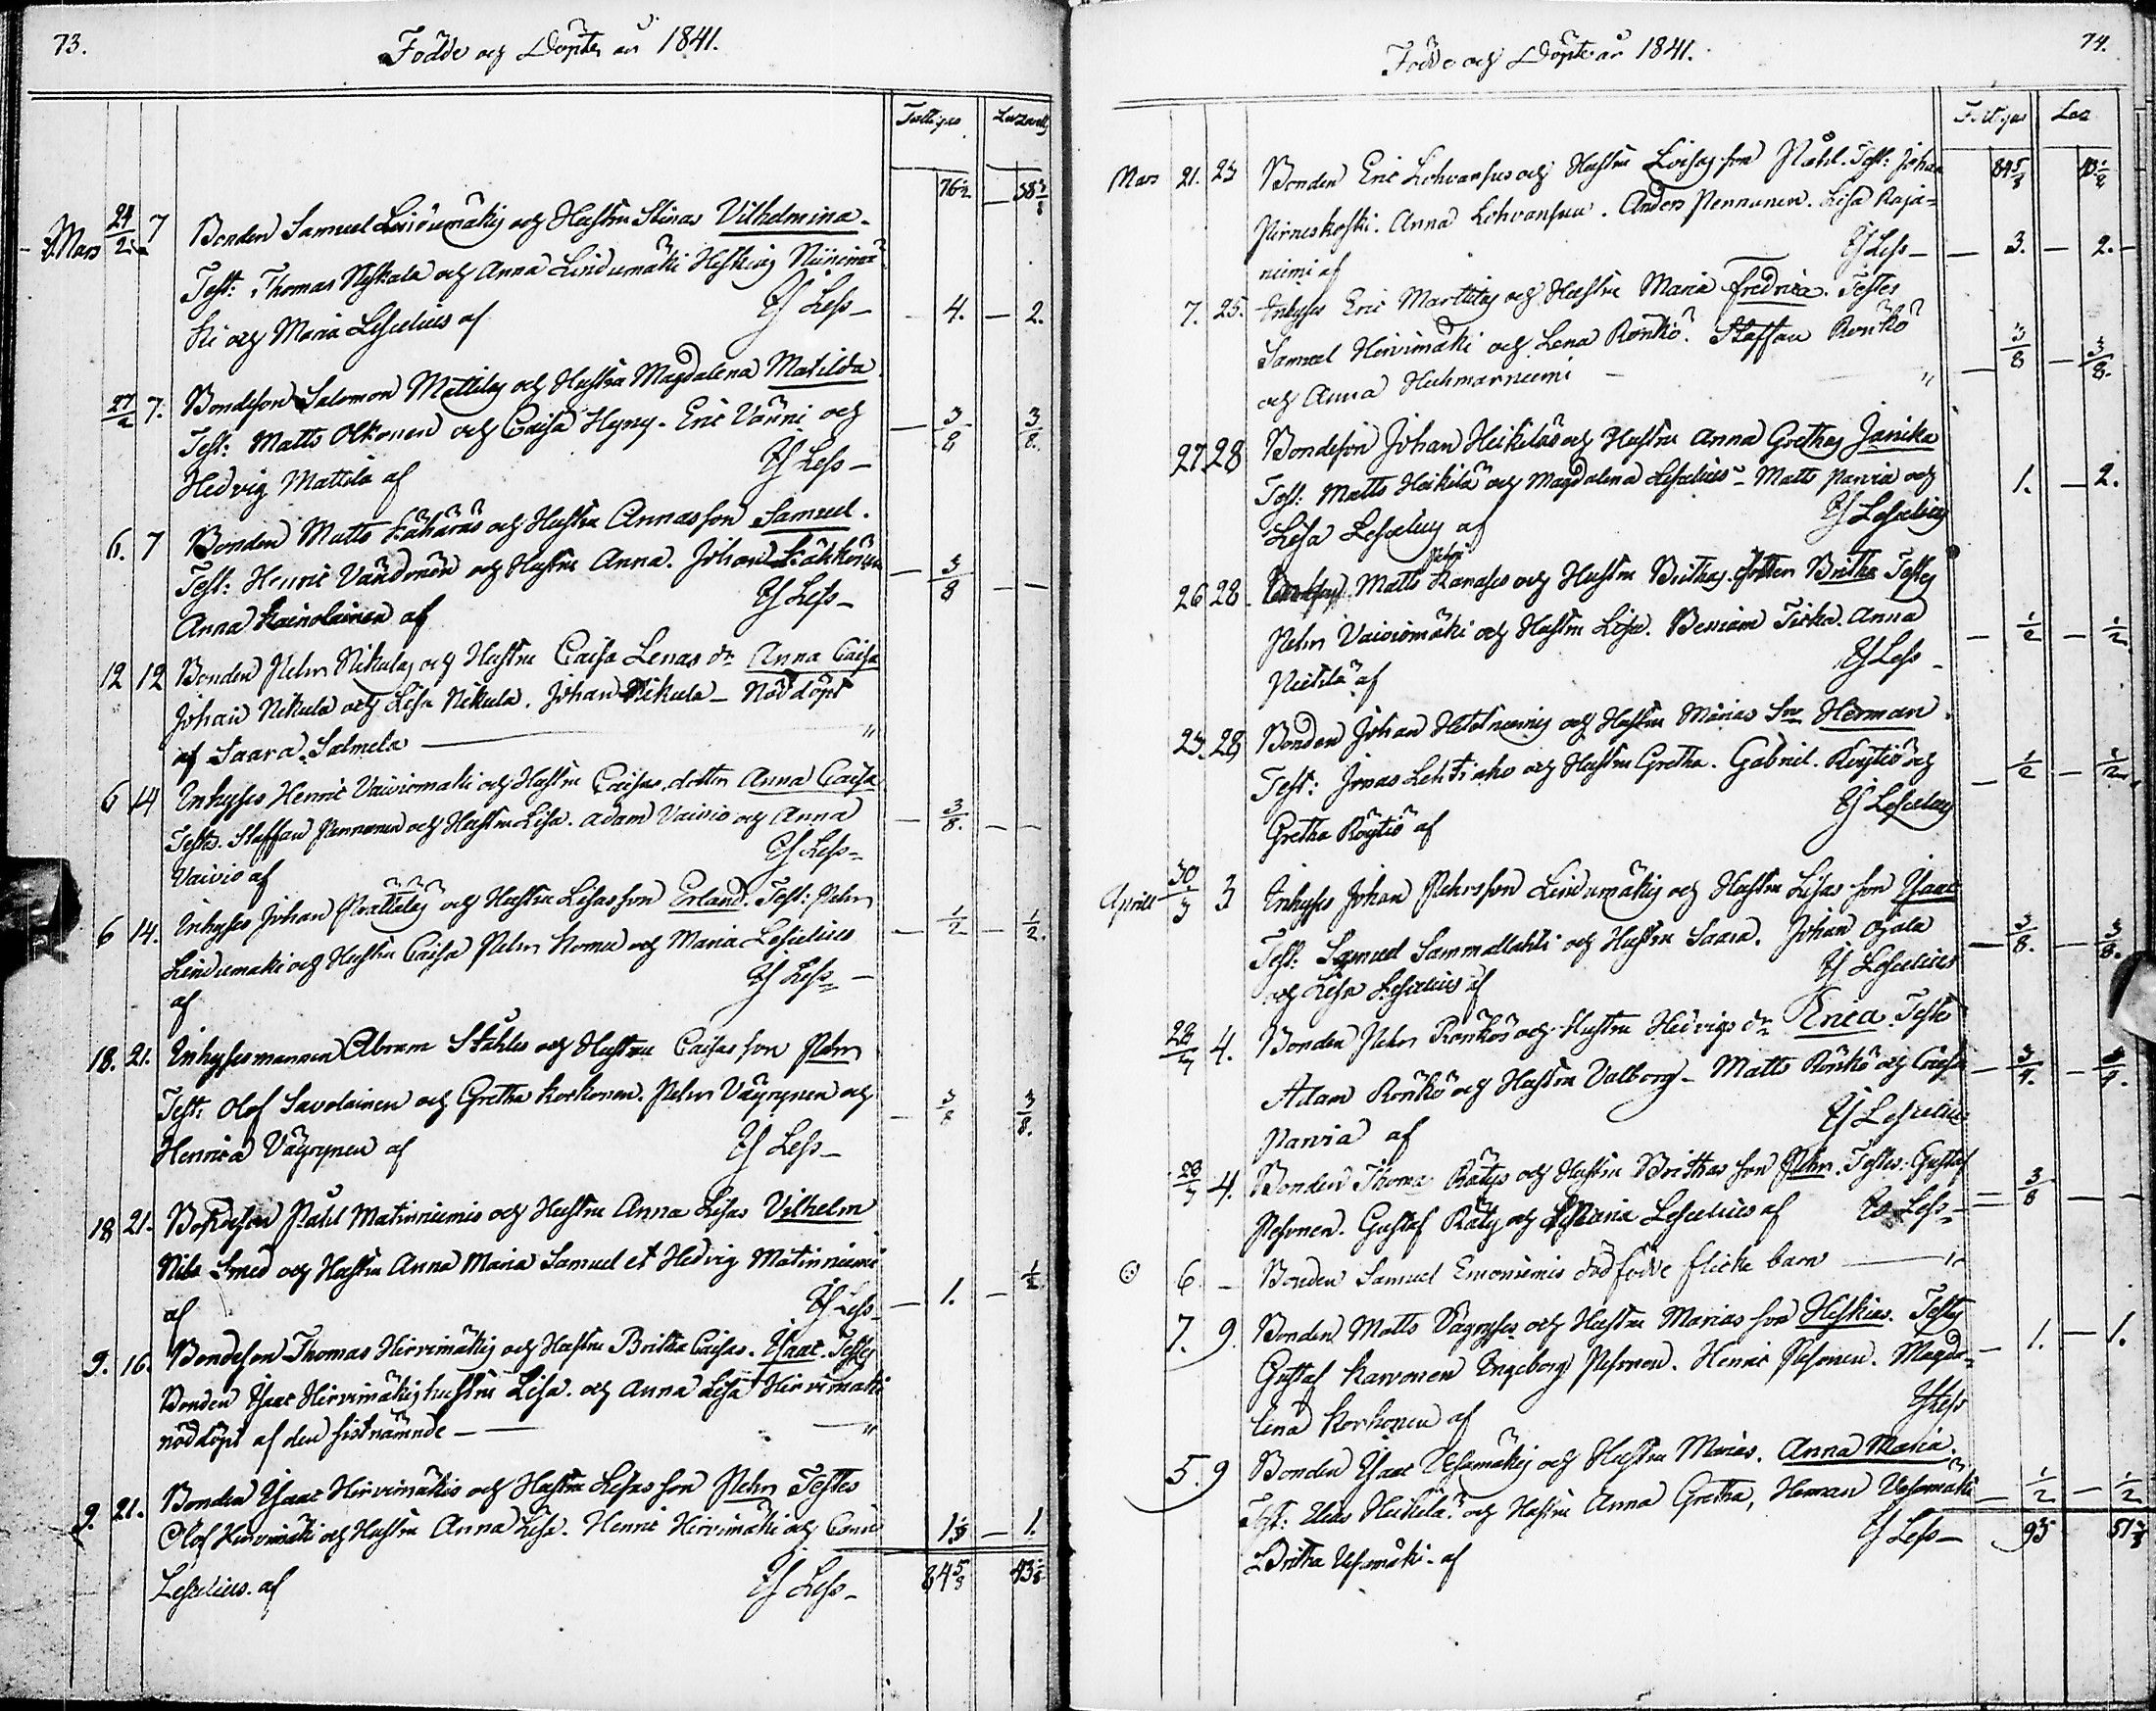 73.
Födde och Döpte år 1841.
76 1/2 38 3/8
Mars 24/2 7 Bonden Samuel Lindumäkis och Hustru Stinas Vilhelmina.
Test: Thomas Niskala och Anna Lindumäki Heskias Niinimä-
ki och Maria Lescelius af Es Less — 4. — 2.
27/2 7. Bondeson Salomon Mattilas och Hustru Magdalena Matilda
Test: Matts Olkonen och Caisa Hyny. Eric Vänni och — 3/8 3/8.
Hedvig Mattila af Es Less —
6. 7 Bonden Matts Lähäräs och Hustru Annas son Samuel.
Test: Henric Vänönen och Hustru Anna. Johan — 3/8 —
Anna Kainolainen af Es Less —
12 12 Bonden Pehr Nikulas och Hustru Caisa Lenas dr Anna Caisa
Johan Nikula och Lisa Nikula. Johan Nikula — Nöddöpt
af Saara Salmela — "
6 14 Inhyses Henric Vaiviomäki och Hustru Caisas dotter Anna Caisa
Testes. Staffan Pennanen och Hustru Lisa. Adam Vaivio och Anna — 3/8. —
Vaivio af Es Less —
6 14. Inhyses Johan Prättäläs och Hustru Lisas son Erland. Test: Pehr
Lindumäki och Hustru Caisa Pehr Komu och Maria Lescelius — 1/2 — 1/2.
af Es Less —
18. 21. Inhysesmannen Abram Ståhles och Hustru Caisas son Pehr
Test: Olof Savolainen och Gretha Korkonen. Pehr Väyrynen och — 3/8 3/8.
Henrica Väyrynen af Es Less —
18 21. Bondeson Påhl Matinniemis och Hustru Anna Lisas Vilhelm
Nils Smed och Hustru Anna Maria Samuel et Hedvig Matinniemi
af Es Less — 1. — 1/2
9. 16. Bondeson Thomas Hirvimäkis och Hustru Britha Caisas. Isaac. Testes
Bonden Isaac Hirvimäkis hustru Lisa. och Anna Lisa Hirvimäki
nöddöpt af den sistnämnde — "
9. 21. Bonden Isaac Hirvimäkis och Hustru Lisas son Pehr Testes
Olof Hirvimäki och Hustru Anna Lisa. Henric Hirvimäki och — 1.
Lescelius. af Es Less — 84 5/8 43 1/8
74.
Födde och Döpte år 1841.
84 5/8
Mars 21. 23 Bonden Eric Lohvansus och Hustru Lovisas son Påhl. Test: Johan
Pirneskoski. Anna Lohvansuu. Anders Pennanen. Lisa Raja-
niemi af Es Less — 3. — 2.
7. 25. Inhyses Eric Marttilas och Hustru Maria Fredrica. Testes
Samuel Hirvimäki och Lena Rönkö. Staffan Rönkö — 3/8 — 3/8.
och Anna Huhmarniemi — "
27. 28 Bondeson Johan Heikiläs och Hustru Anna Grethas Janika
Test: Matts Heikilä och Magdalena Lescelius — Matts Parvia och 1. — 2.
Lisa Lescelius af Es Lescelius
26 28 Matts Kanases och Hustru Brithas dotter Britha Testes
Pehr Vaiviomäki och Hustru Lisa. Beniam Tirka. Anna — 1/2 — 1/2
Niitilä af Es Less —
23. 28 Bonden Johan Hetetniemis och Hustru Marias Son Herman.
Test: Jonas Lehtiaho och Hustru Gretha. Gabriel Röytiö och — 1/2 — 1/2
Gretha Röytiö af Es Lescelius
Aprill 30/3 3 Inhyses Johan Pehrsson Lindumäkis och Hustru Lisas son Isaac
Test: Samuel Sammallahti och Hustru Saara. Johan Ojala — 3/8. — 3/8.
och Lisa Lescelius af Es Lescelius
28/3 4. Bonden Pehr Rönkös och Hustru Hedvigs dr Erica. Testes
Adam Rönkö och Hustru Valborg — Matts Rönkö och Caisa
Parvia af Es Lescelius
28/3 4. Bonden Thomas Rätys och Hustru Brithas son Pehr. Testes. Gustaf
Pesonen. Gustaf Räty och Maria Lescelius af Es Less — 3/8 —
6 — Bonden Samuel Emoniemis dödfödde flicke barn — "
7. 9. Bonden Matts Väyryses och Hustru Marias son Heskias. Testes
Gustaf Karvonen Ingeborg Pesonen. Henric Pesonen. Magda- — 1. — 1.
lena Korhonen af Es Less
5. 9 Bonden Isaac Vesamäkis och Hustru Marias. Anna Maria.
Test: Elias Heikilä och Hustru Anna Gretha, Herman Vesamäki — 1/2 — 1/2
Britha Vesamäki. af Es Less — 95